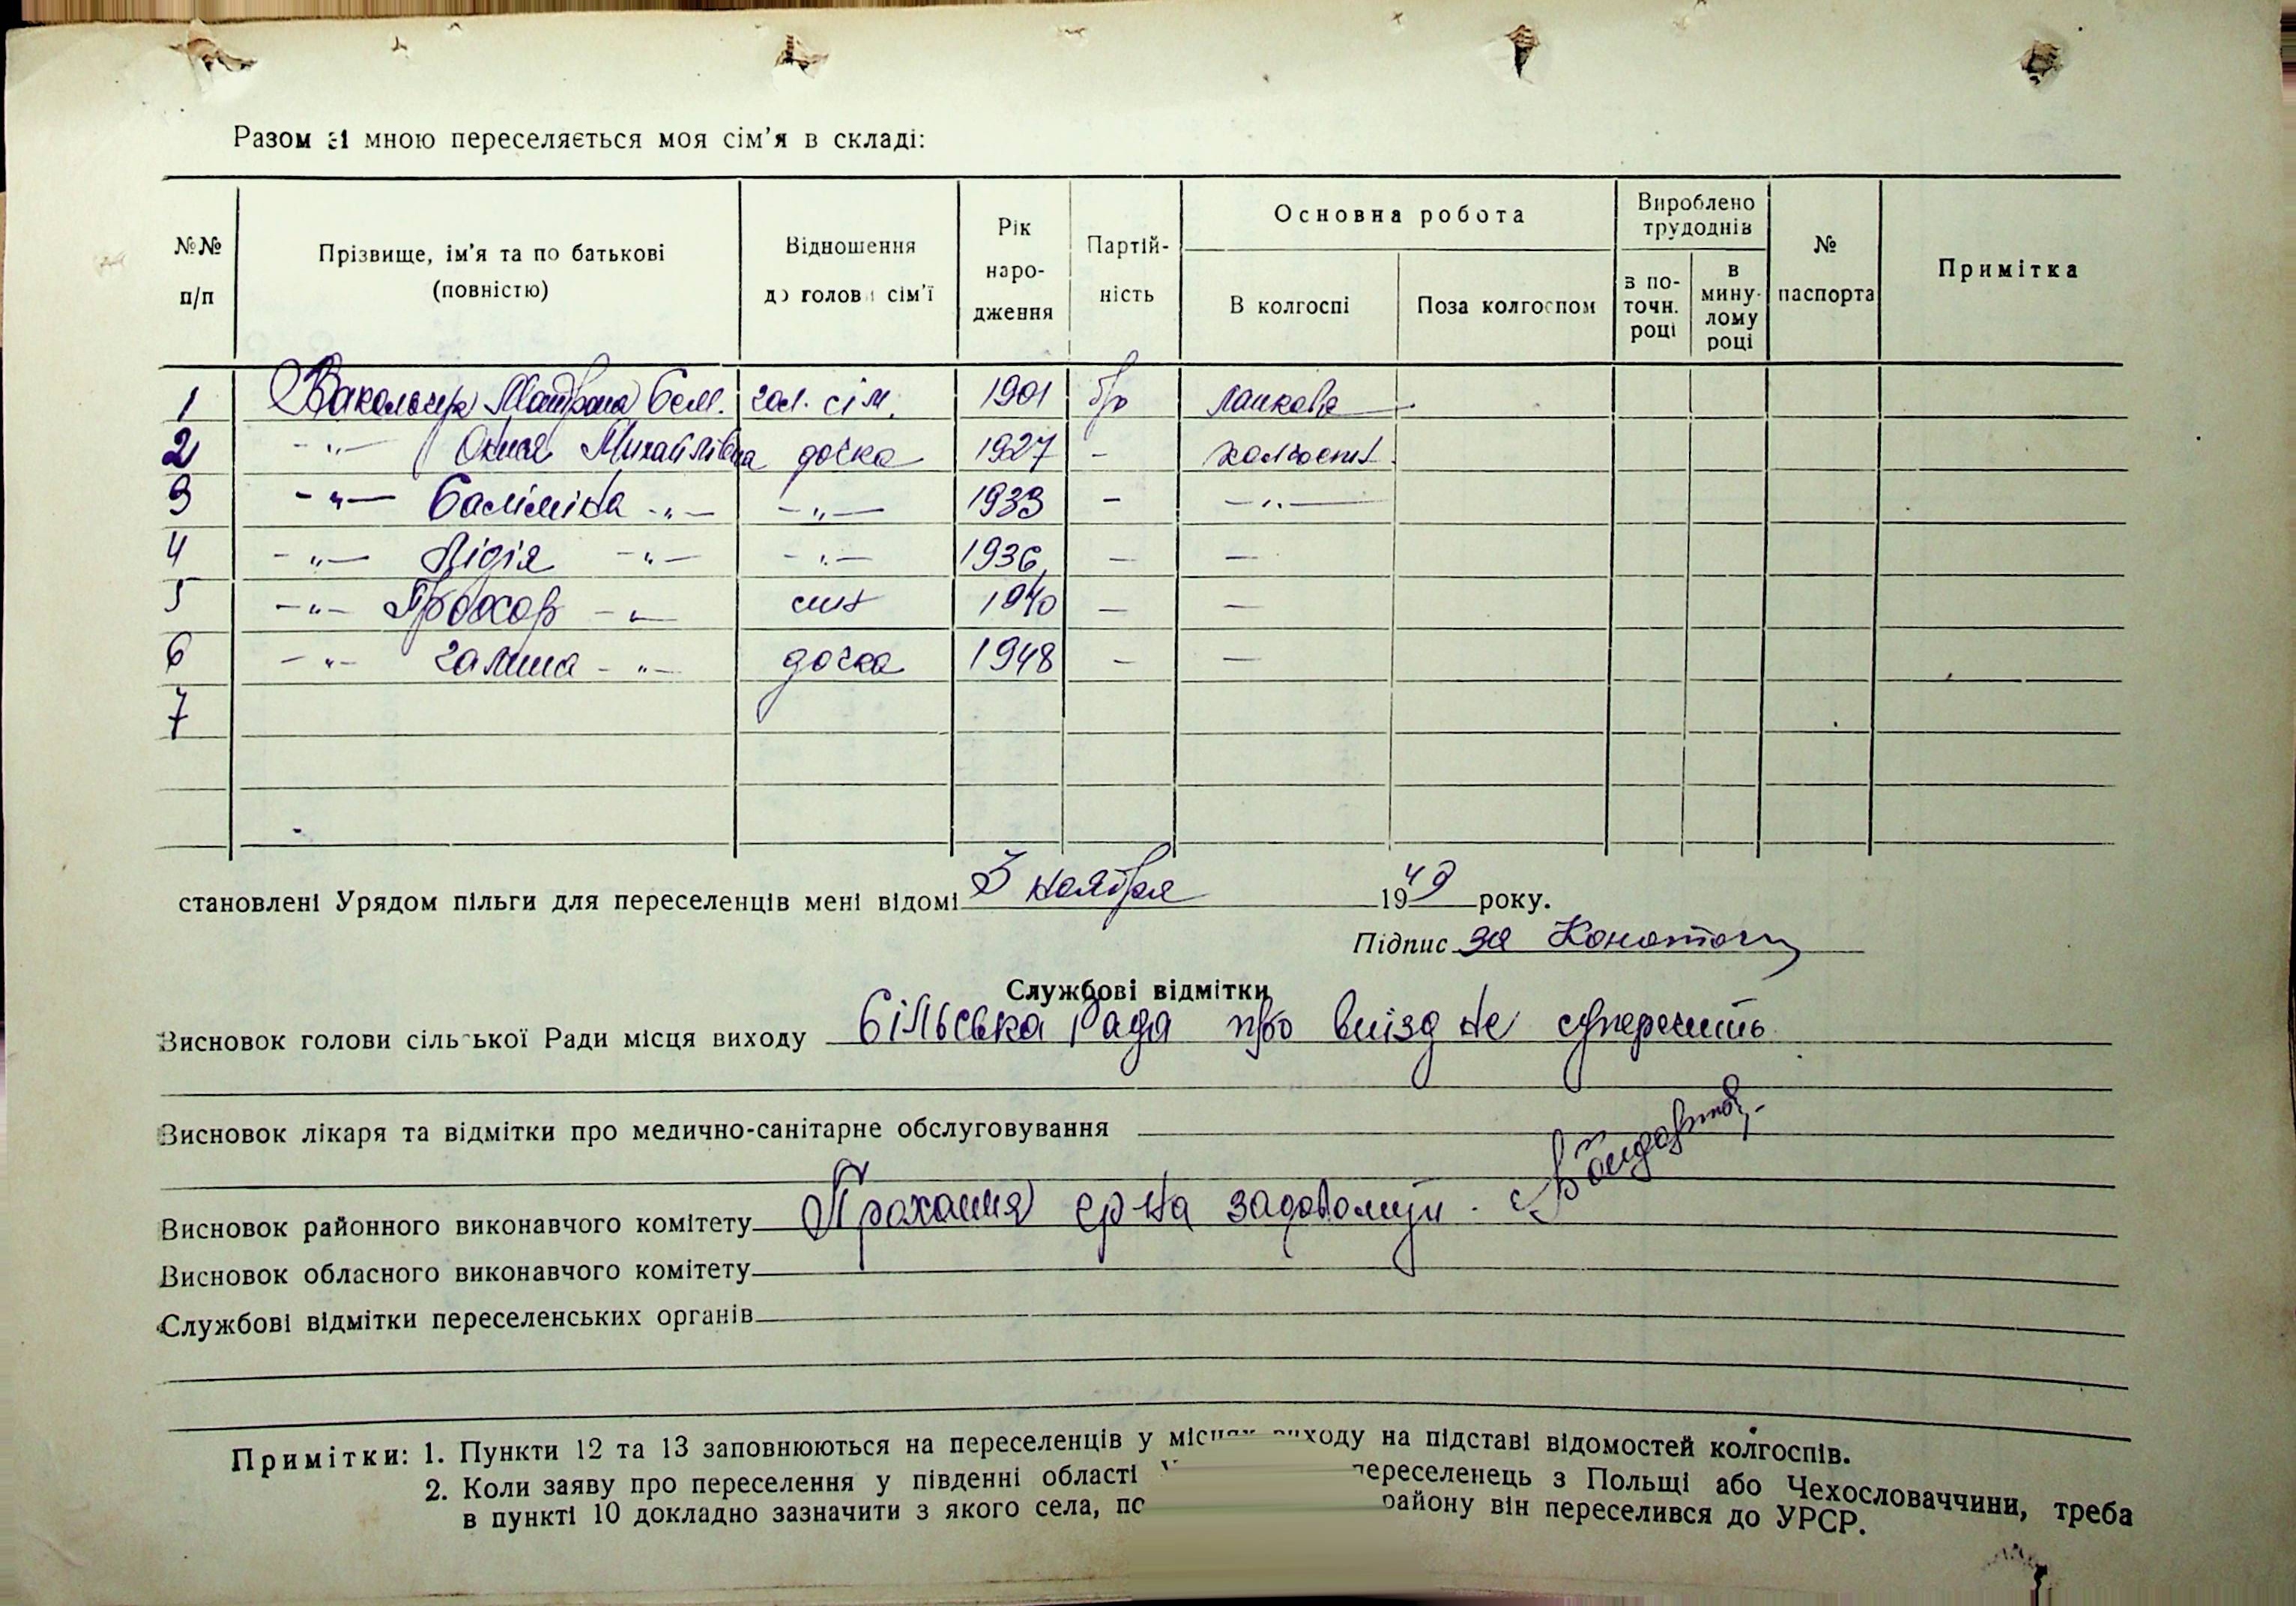 Разом зі мною переселяється моя сім'я в складі:
№№ п/п
Прізвище, ім'я та по батькові (повністю)
Відношення до голови сім'ї
Рік народження
Партійність
Основна робота
В колгоспі
Поза колгоспом
Вироблено трудоднів
в поточн. році
в минулому році
№ паспорта
Примітка
1 Мотрона Сем. гол. сім. 1901 б/р ланкова
2 -„- Михайлівна дочка 1927 - колгосп.
3 -„- -„- -„- 1933 - -„-
4 -„- Лідія -„- -„- 1936 — —
5 -„- Прохор -„- син 1940 — —
6 -„- Галина -„- дочка 1948 — —
7
становлені Урядом пільги для переселенців мені відомі 3 ноября 1949 року.
Підпис за
Службові відмітки
Висновок голови сільської Ради місця виходу Сільська Рада про виїзд не суперечить
Висновок лікаря та відмітки про медично-санітарне обслуговування
Висновок районного виконавчого комітету Прохання гр-на
Висновок обласного виконавчого комітету
Службові відмітки переселенських органів
Примітки: 1. Пункти 12 та 13 заповнюються на переселенців у місцях виходу на підставі відомостей колгоспів.
2. Коли заяву про переселення у південні області переселенець з Польщі або Чехословаччини, треба
в пункті 10 докладно зазначити з якого села, району він переселився до УРСР.